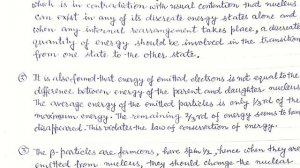 which is in contradiction with usual contention that nucleus
can exist in any of its discreate energy states alone and
when any internal rearrangement takes place, a discreate
quantity of energy should be involved in the transition
from one state to the other state.
② It is also found that energy of emitted electrons is not equal to the
difference between energy of the parent and daughter nucleus
The average energy of the emitted particles is only 1/3rd of the
maximum energy. The remaining 2/3rd of energy seems to have
disappeared. This violates the law of conservation of energy.
③ The β-particles are fermions, have spin 1/2, hence when they are
emitted from nucleus, they should change the nuclear